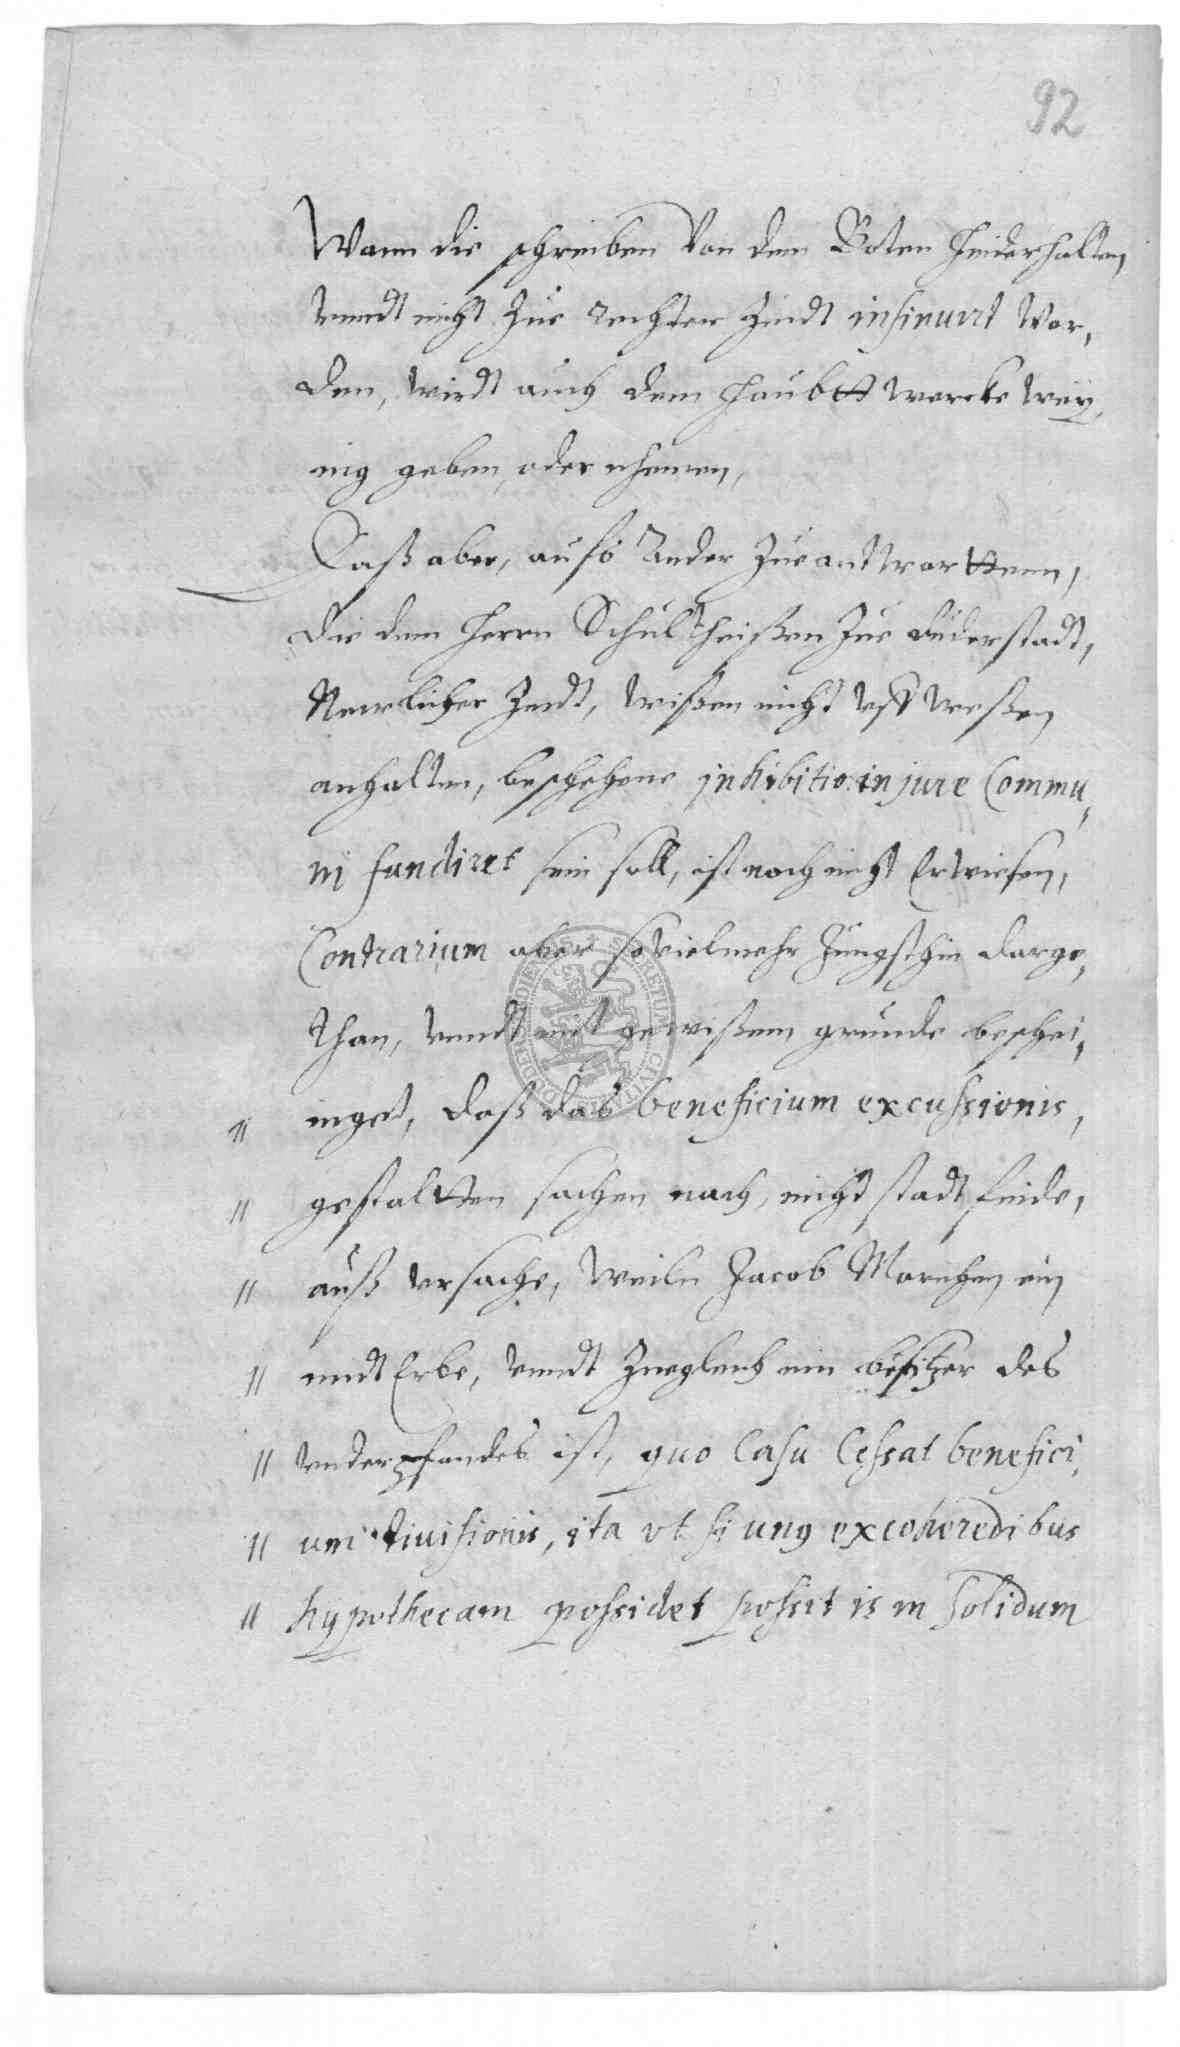 92
Wann die schreiben von dem Boten hinderhalten,
vnndt nicht zue rechter Zeidt insinuirt wor,
den, wirdt auch dem haubtt wercke weÿ,
nig geben, oder nhemen,
Daß aber, aufs Ander zue antwortten,
die dem Herrn Schultheißen zue duderstadt,
Newlicher Zeidt, wißen nicht vff weßen
anhalten, beschehene jnhibitio: in jure Commu,
ni fundiret sein soll, ist noch nicht Erwiesen,
Contrarium aber so vielmehr Jungsthin darge,
than, vnndt mit gewißem grunde beschei,
niget, daß das beneficium excussionis,
gestaltten sachen nach, nicht stadt finde,
auß vrsache, weiln Jacob Morichen ein
midt Erbe, vnndt Zuegleich ein besitzer des
vnderpfandes ist, quo Casu Cessat benefici,
um diuisionis, ita vt si unq ex coheredibus
hypothecam possidet possit is in solidum